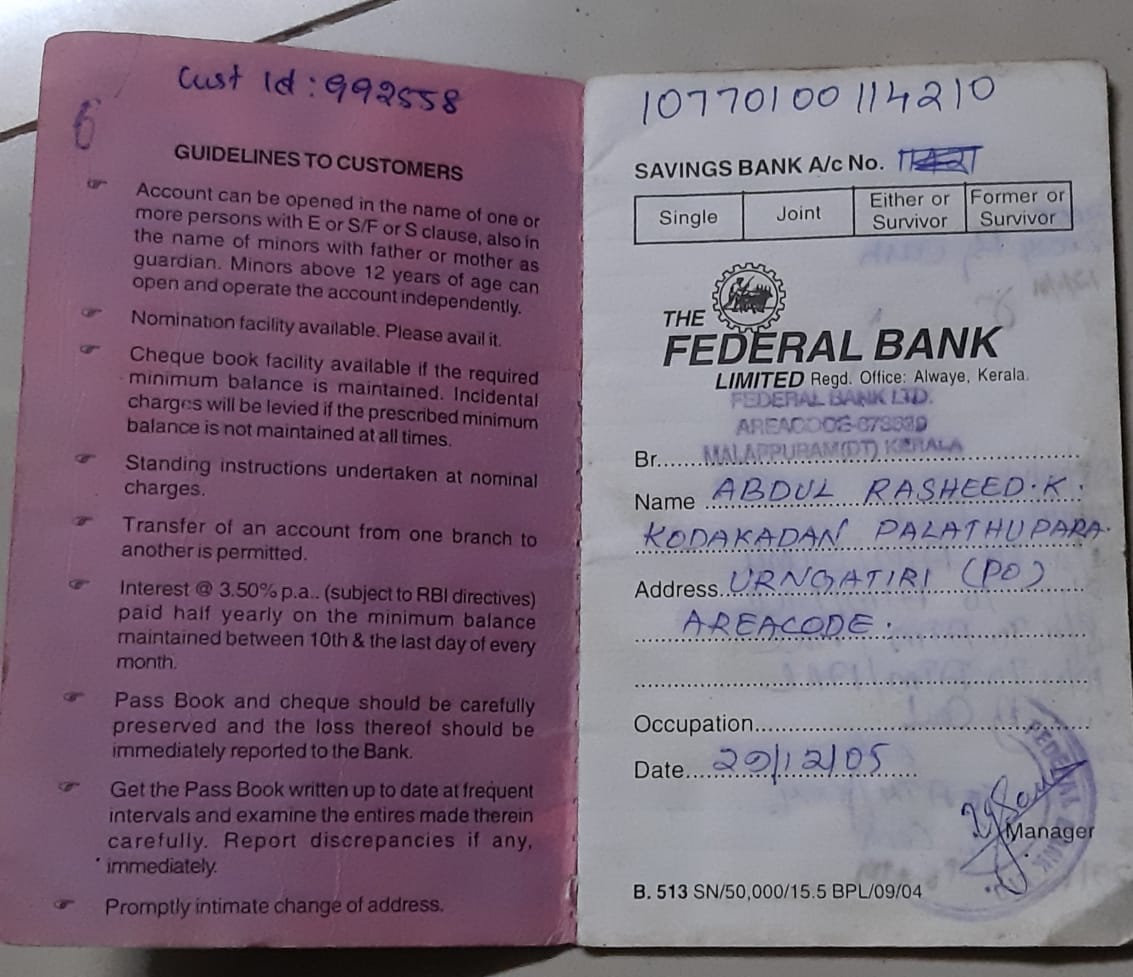 Cust Id : 992558
6
GUIDELINES TO CUSTOMERS
Account can be opened in the name of one or
more persons with E or S/F or S clause, also in
the name of minors with father or mother as
guardian. Minors above 12 years of age can
open and operate the account independently.
Nomination facility available. Please avail it.
Cheque book facility available if the required
minimum balance is maintained. Incidental
charges will be levied if the prescribed minimum
balance is not maintained at all times.
Standing instructions undertaken at nominal
charges.
Transfer of an account from one branch to
another is permitted.
Interest @ 3.50% p.a.. (subject to RBI directives)
paid half yearly on the minimum balance
maintained between 10th & the last day of every
month.
Pass Book and cheque should be carefully
preserved and the loss thereof should be
immediately reported to the Bank.
Get the Pass Book written up to date at frequent
intervals and examine the entires made therein
carefully. Report discrepancies if any,
immediately.
Promptly intimate change of address.
10770100114210
SAVINGS BANK A/c No.
Single Joint Either or Survivor Former or Survivor
THE
FEDERAL BANK
LIMITED Regd. Office: Alwaye, Kerala.
FEDERAL BANK LTD.
AREACODE-673639
Br. MALAPPURAM(DT) KERALA
Name ABDUL RASHEED.K.
KODAKADAN PALATHUPARA.
Address URNGATIRI (PO)
AREACODE.
Occupation
Date 29/12/05
Manager
FEDERAL BANK
B. 513 SN/50,000/15.5 BPL/09/04